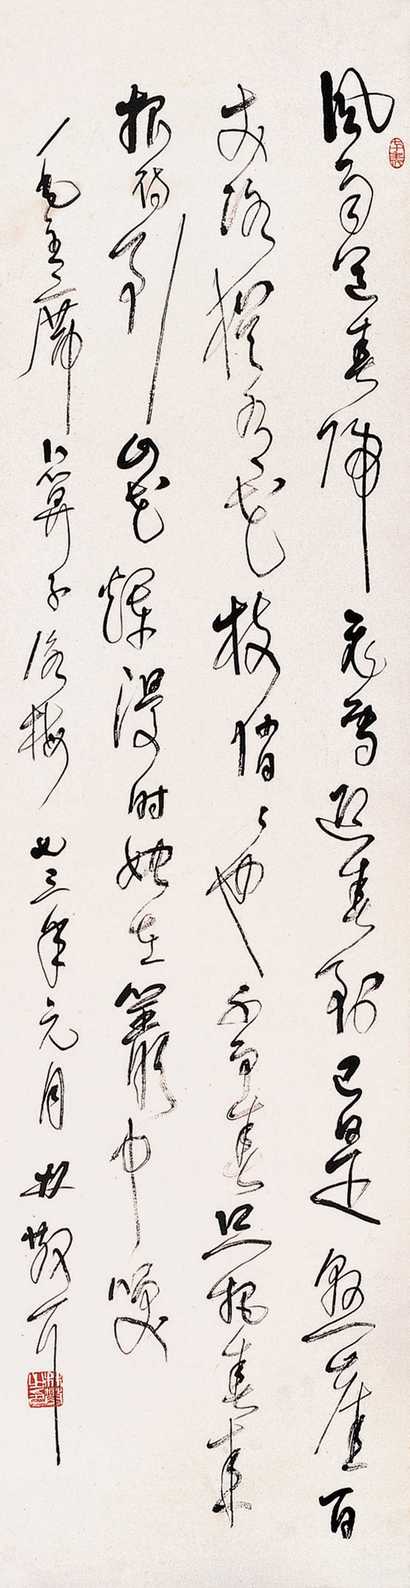 風雨送春歸飛雪迎春到已是懸崖百
丈冰猶有花枝俏々也不爭春只把春來
報待到山花爛漫時她在叢中笑
毛主席卜算子詠梅 七三年元月 林散耳